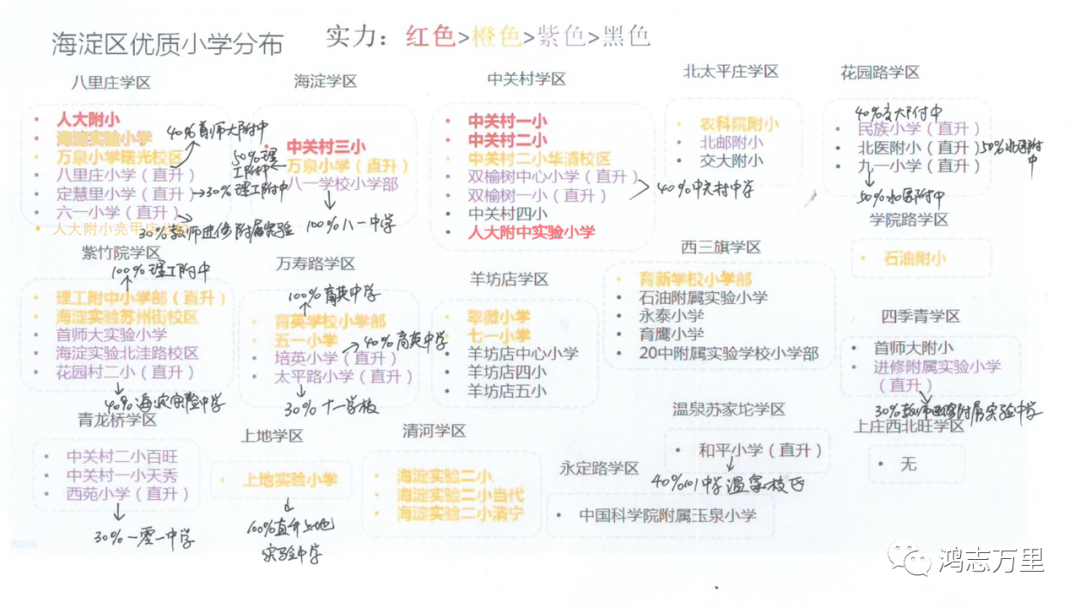 海淀区优质小学分布
实力：红色>橙色>紫色>黑色
八里庄学区
• 人大附小
• 海淀实验小学
40%首师大附中
• 万泉小学曙光校区
• 八里庄小学（直升）
• 定慧里小学（直升）
30%理工附中
• 六一小学（直升）
30%教师进修附属实验
• 人大附小亮甲店
海淀学区
• 中关村三小
50%理工附中
• 万泉小学（直升）
• 八一学校小学部
100%八一中学
中关村学区
• 中关村一小
• 中关村二小
• 中关村二小华清校区
• 双榆树中心小学（直升）
• 双榆树一小（直升）
40%中关村中学
• 中关村四小
• 人大附中实验小学
北太平庄学区
• 农科院附小
• 北邮附小
• 交大附小
花园路学区
40%交大附中
• 民族小学（直升）
• 北医附小（直升）
50%北医附中
• 九一小学（直升）
50%北医附中
学院路学区
• 石油附小
紫竹院学区
100%理工附中
• 理工附中小学部（直升）
• 海淀实验苏州街校区
• 首师大实验小学
• 海淀实验北洼路校区
• 花园村二小（直升）
40%海淀实验中学
万寿路学区
100%育英中学
• 育英学校小学部
• 五一小学
40%育英中学
• 培英小学（直升）
• 太平路小学（直升）
30%十一学校
羊坊店学区
• 翠微小学
• 七一小学
• 羊坊店中心小学
• 羊坊店四小
• 羊坊店五小
西三旗学区
• 育新学校小学部
• 石油附属实验小学
• 永泰小学
• 育鹰小学
• 20中附属实验学校小学部
四季青学区
• 首师大附小
• 进修附属实验小学
（直升）
30%教师进修附属实验中学
青龙桥学区
• 中关村二小百旺
• 中关村一小天秀
• 西苑小学（直升）
30%一零一中学
上地学区
• 上地实验小学
100%直升上地
实验中学
清河学区
• 海淀实验二小
• 海淀实验二小当代
• 海淀实验二小清宁
温泉苏家坨学区
• 和平小学（直升）
40%101中学温泉校区
上庄西北旺学区
• 无
永定路学区
• 中国科学院附属玉泉小学
鸿志万里